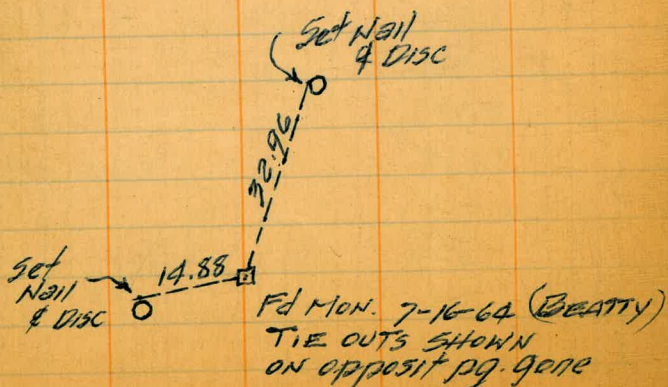 Set Nail
& Disc
32.96
Set
Nail
& Disc
14.88
Fd MON. 7-16-64 (BEATTY)
TIE OUTS SHOWN
ON opposit pg. gone